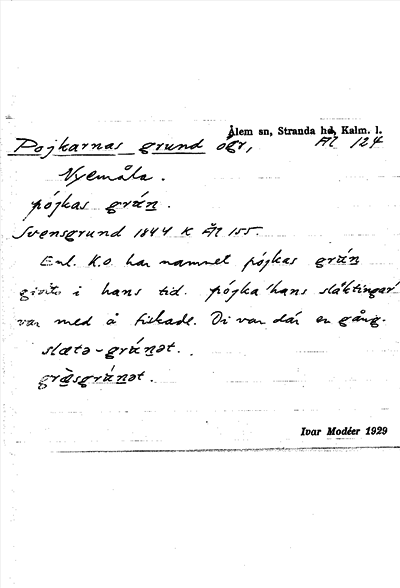 Ålem sn, Stranda hd, Kalm. l.
Pojkarnas grund ögr, Ål 124
Nyemåla.
pójkas grán.
Svensgrund 1844 K Ål 155.
Enl. K.O. har namnet pójkas grán
givits i hans tid. pójka 'hans släktingar'
var med å fiskade. Di var där en gång.
slætə-gránət.
græ̀sgránət.
Ivar Modéer 1929